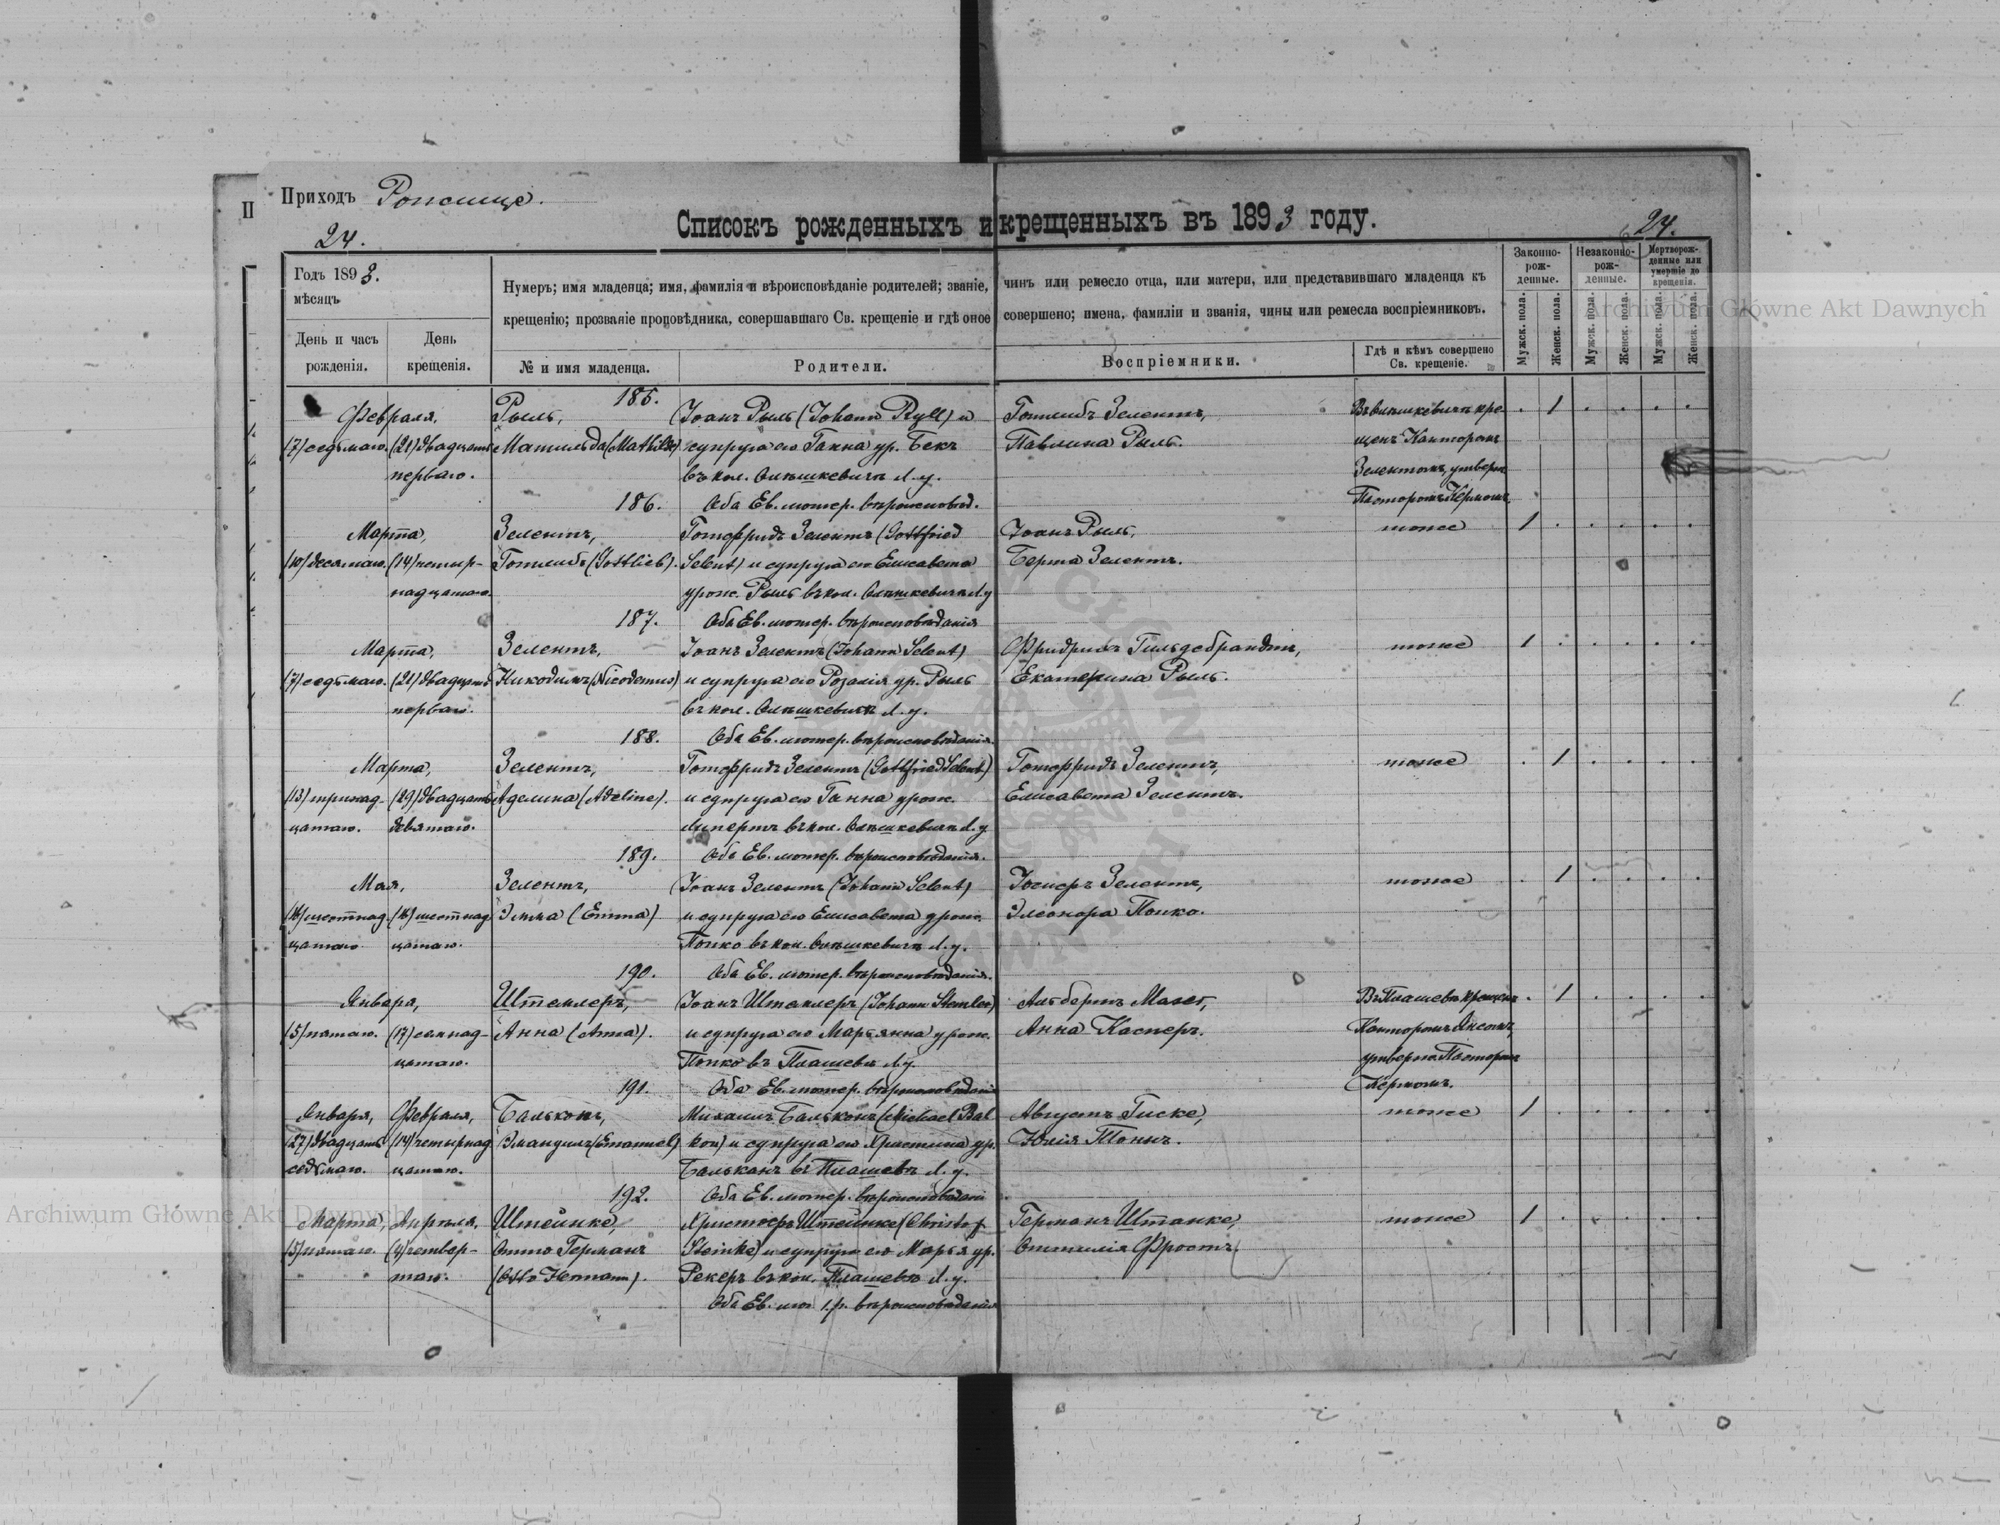 II
Приходъ Рожище.
Списокъ рожденныхъ и крещенныхъ въ 1893 году.
24.
24.
Годъ 1893.
мѣсяцъ
День и часъ рожденія.
День крещенія.
Нумеръ; имя младенца; имя, фамилія и вѣроисповѣданіе родителей; званіе, чинъ или ремесло отца, или матери, или представившаго младенца къ
крещенію; прозваніе проповѣдника, совершавшаго Св. крещеніе и гдѣ оное совершено; имена, фамиліи и званія, чины или ремесла воспріемниковъ.
№ и имя младенца.
Родители.
Воспріемники.
Гдѣ и кѣмъ совершено Св. крещеніе.
Законно-рож-денные.
Незаконно-рож-денные.
Мертворож-денные или умершіе до крещенія.
Мужск. пола.
Женск. пола.
Мужск. пола.
Женск. пола.
Мужск. пола.
Женск. пола.
Archiwum Główne Akt Dawnych
185.
Февраля, Рыль, Іоанъ Рыль (Johann Ryll) и Готлибъ Зелентъ, 1
(7) седьмаго. (21) двадцать Матильда (Mathilde) супруга его Ганна ур. Бекъ Павлина Рыль. щенъ Канторомъ
перваго. въ кол. Олешкевичъ Л. у. Зелентомъ, утвержд.
186. Оба Ев. лютер. вѣроисповѣд. Пасторомъ Кермомъ
Марта, Зелентъ, Готфридъ Зелентъ (Gottfried Іоанъ Рыль, тоже 1
(10) десятаго. (14) четыр- Готлибъ (Gottlieb). Selent) и супруга его Елисавета Берта Зелентъ.
надцатаго. урож. Рыль въ кол. Олешкевичъ Л. у
187. Оба Ев. лютер. вѣроисповѣданія
Марта, Зелентъ, Іоанъ Зелентъ (Johann Selent) Фридрихъ Гильдебрандтъ, тоже 1
(7) седьмаго. (21) двадцать Никодимъ (Nicodemus) и супруга его Розалія ур. Рыль Екатерина Рыль.
перваго. въ кол. Олешкевичъ Л. у.
188. Оба Ев. лютер. вѣроисповѣданія.
Марта, Зелентъ, Готфридъ Зелентъ (Gottfried Selent) Готфридъ Зелентъ, тоже 1
(13) тринад- (29) двадцать Аделина (Adeline). и супруга его Ганна урож. Елисавета Зелентъ.
цатаго. девятаго. Липертъ въ кол. Олешкевичъ Л. у
189. Оба Ев. лютер. вѣроисповѣданія.
Мая, Зелентъ, Іоанъ Зелентъ (Johann Selent) Зелентъ, тоже 1
(16) шестнад (16) шестнад Эмма (Emma) и супруга его Елисавета урож. Элеонора Попко.
цатаго цатаго. Попко въ кол. Олешкевичъ Л. у.
190. Оба Ев. лютер. вѣроисповѣданія.
Января, Штемлеръ, Іоанъ Штемлеръ (Johann Stemler) Альбертъ Мазег, Въ Плашевѣ крещенъ 1
(5) пятаго. (17) семнад- Анна (Anna). и супруга его Марьянна урож. Анна Касперъ. Канторомъ Янсомъ,
цатаго. Попко въ Плашевѣ Л. у. утвержд. Пасторомъ
191. Оба Ев. лютер. вѣроисповѣданія Кермомъ.
Января, Февраля, Бальконъ, Михаилъ Бальконъ (Michael Bal Августъ Гиске, тоже 1
(27) двадцать (14) четырнад Эмануилъ (Emanuel) kon) и супруга его Христина ур. Юлія Тонъ.
седьмаго. цатаго. Бальканъ въ Плашевѣ Л. у.
192. Оба Ев. лютер. вѣроисповѣдані
Марта, Апрѣля, Штейнке, Христофъ Штейнке (Christof Германъ Штанке, тоже 1
(5) пятаго. (4) четвер- Отто Германъ Steinke) и супруга его Марья ур. Оттилія Фростъ.
таго. (Otto Hermann). Рекеръ въ кол. Плашевѣ Л. у.
Оба Ев. лютер. вѣроисповѣданія
Archiwum Główne Akt Dawnych